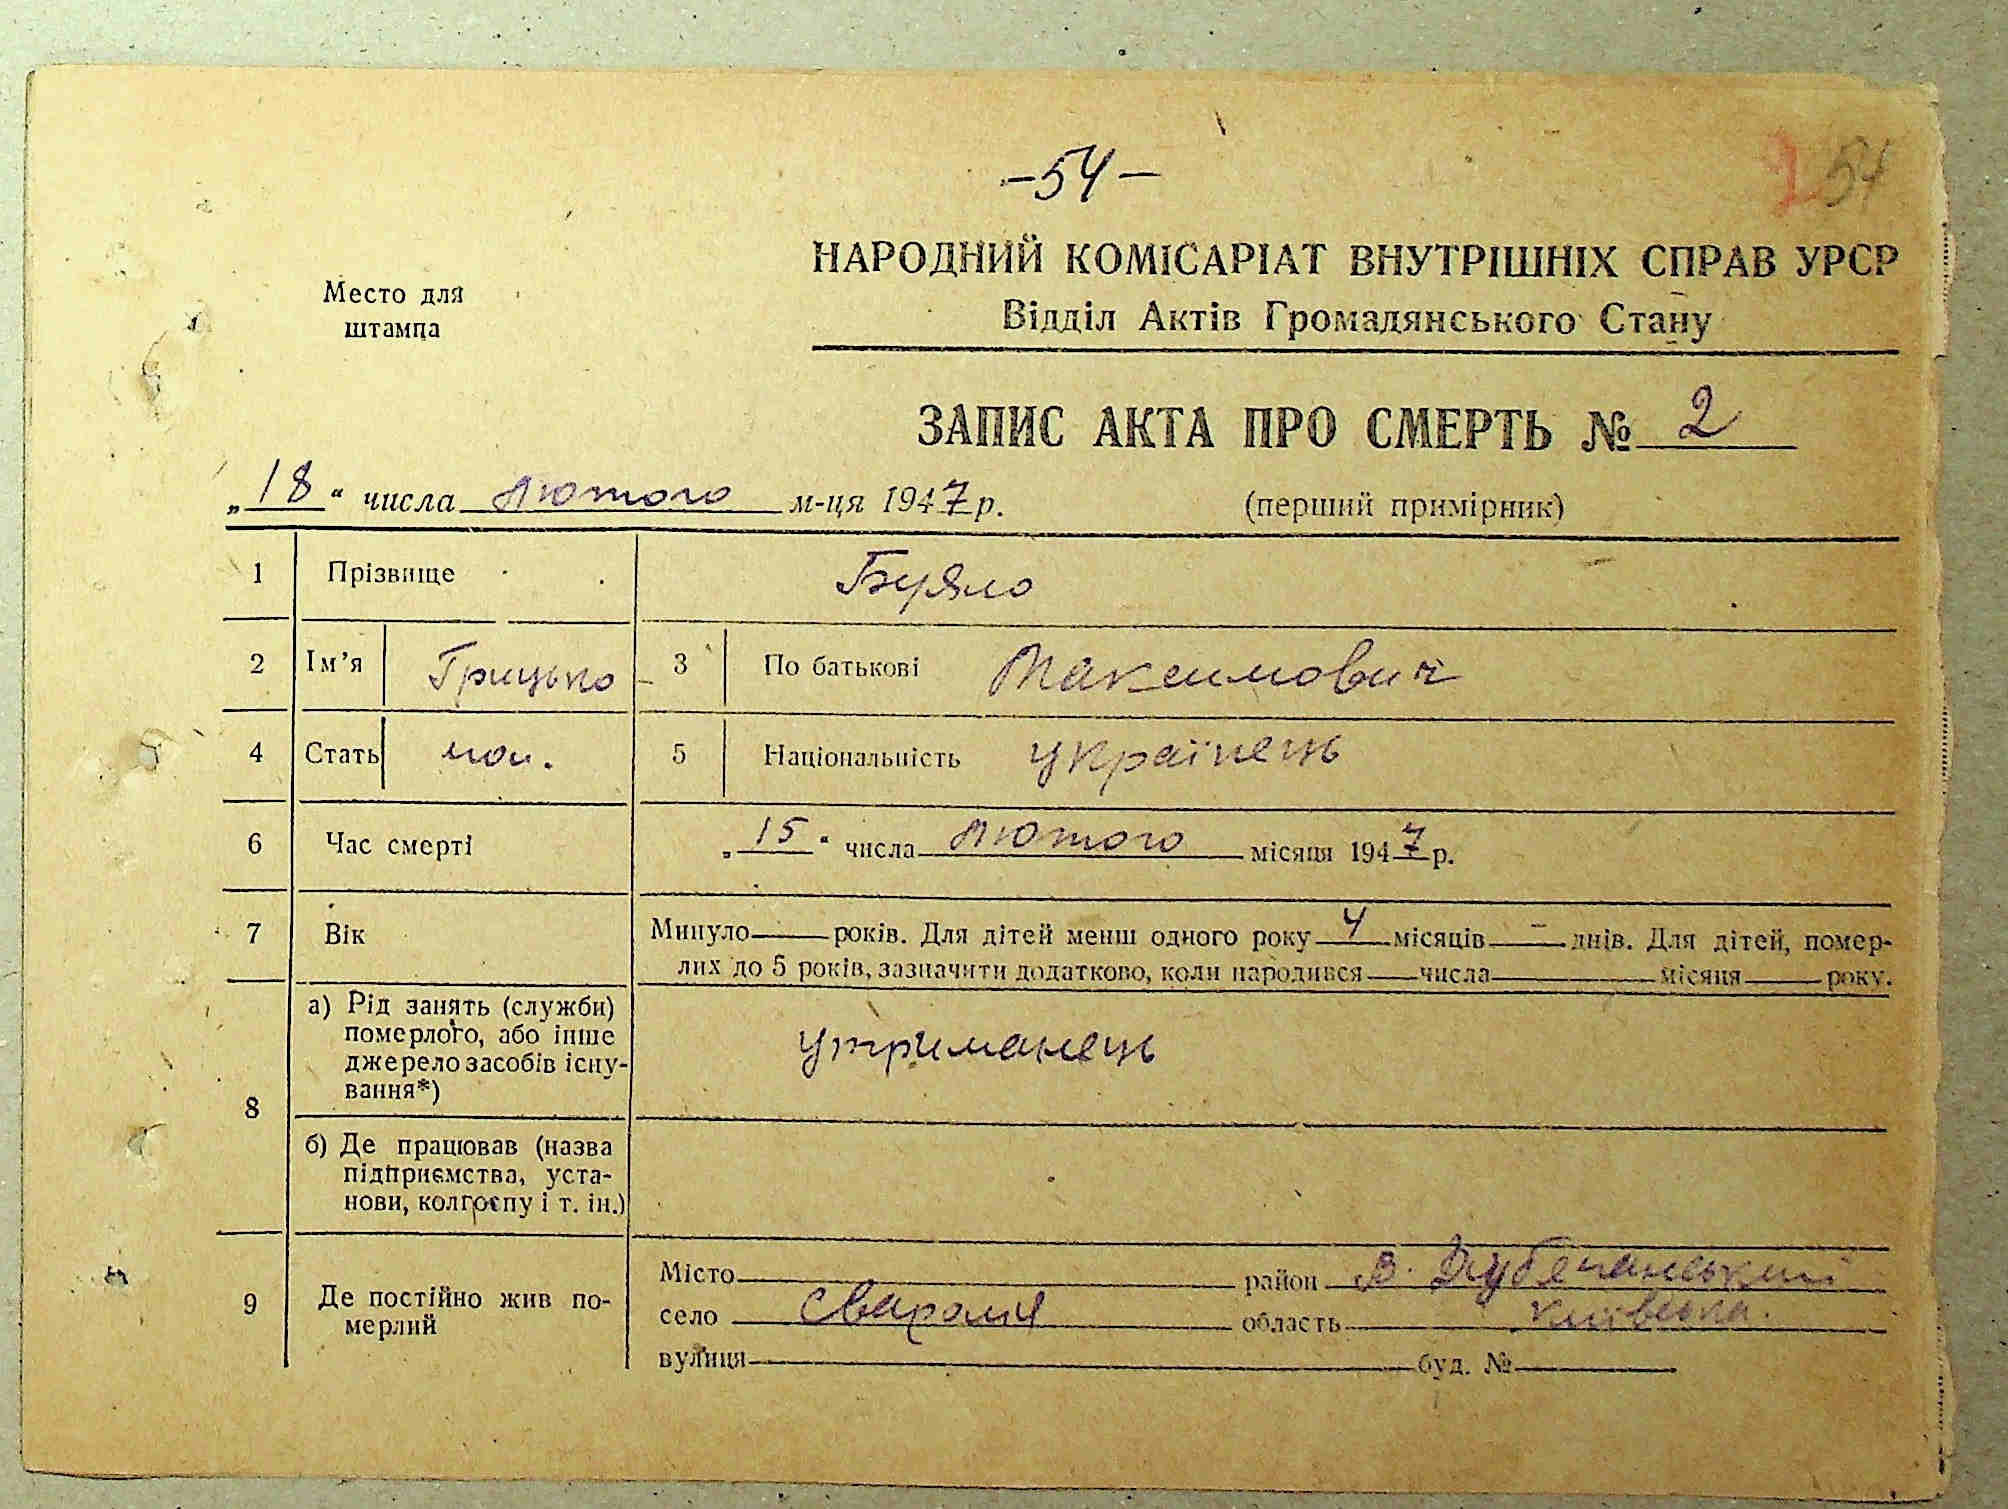 -54-
2 54
НАРОДНИЙ КОМІСАРІАТ ВНУТРІШНІХ СПРАВ УРСР
Відділ Актів Громадянського Стану
Место для
штампа
ЗАПИС АКТА ПРО СМЕРТЬ № 2
„18“ числа лютого м-ця 1947 р.
(перший примірник)
1 Прізвище Буяло
2 Ім'я Грицько 3 По батькові Максимович
4 Стать чол. 5 Національність українець
6 Час смерті „15“ числа лютого місяця 1947 р.
7 Вік Минуло — років. Для дітей менш одного року 4 місяців — днів. Для дітей, помер-
лих до 5 років, зазначити додатково, коли народився — числа — місяця — року.
8 а) Рід занять (служби)
померлого, або інше
джерело засобів існу-
вання*)
утриманець
б) Де працював (назва
підприємства, уста-
нови, колгоспу і т. ін.)
9 Де постійно жив по-
мерлий
Місто район В. Дубечанський
село Сваромя область Київська.
вулиця буд. №